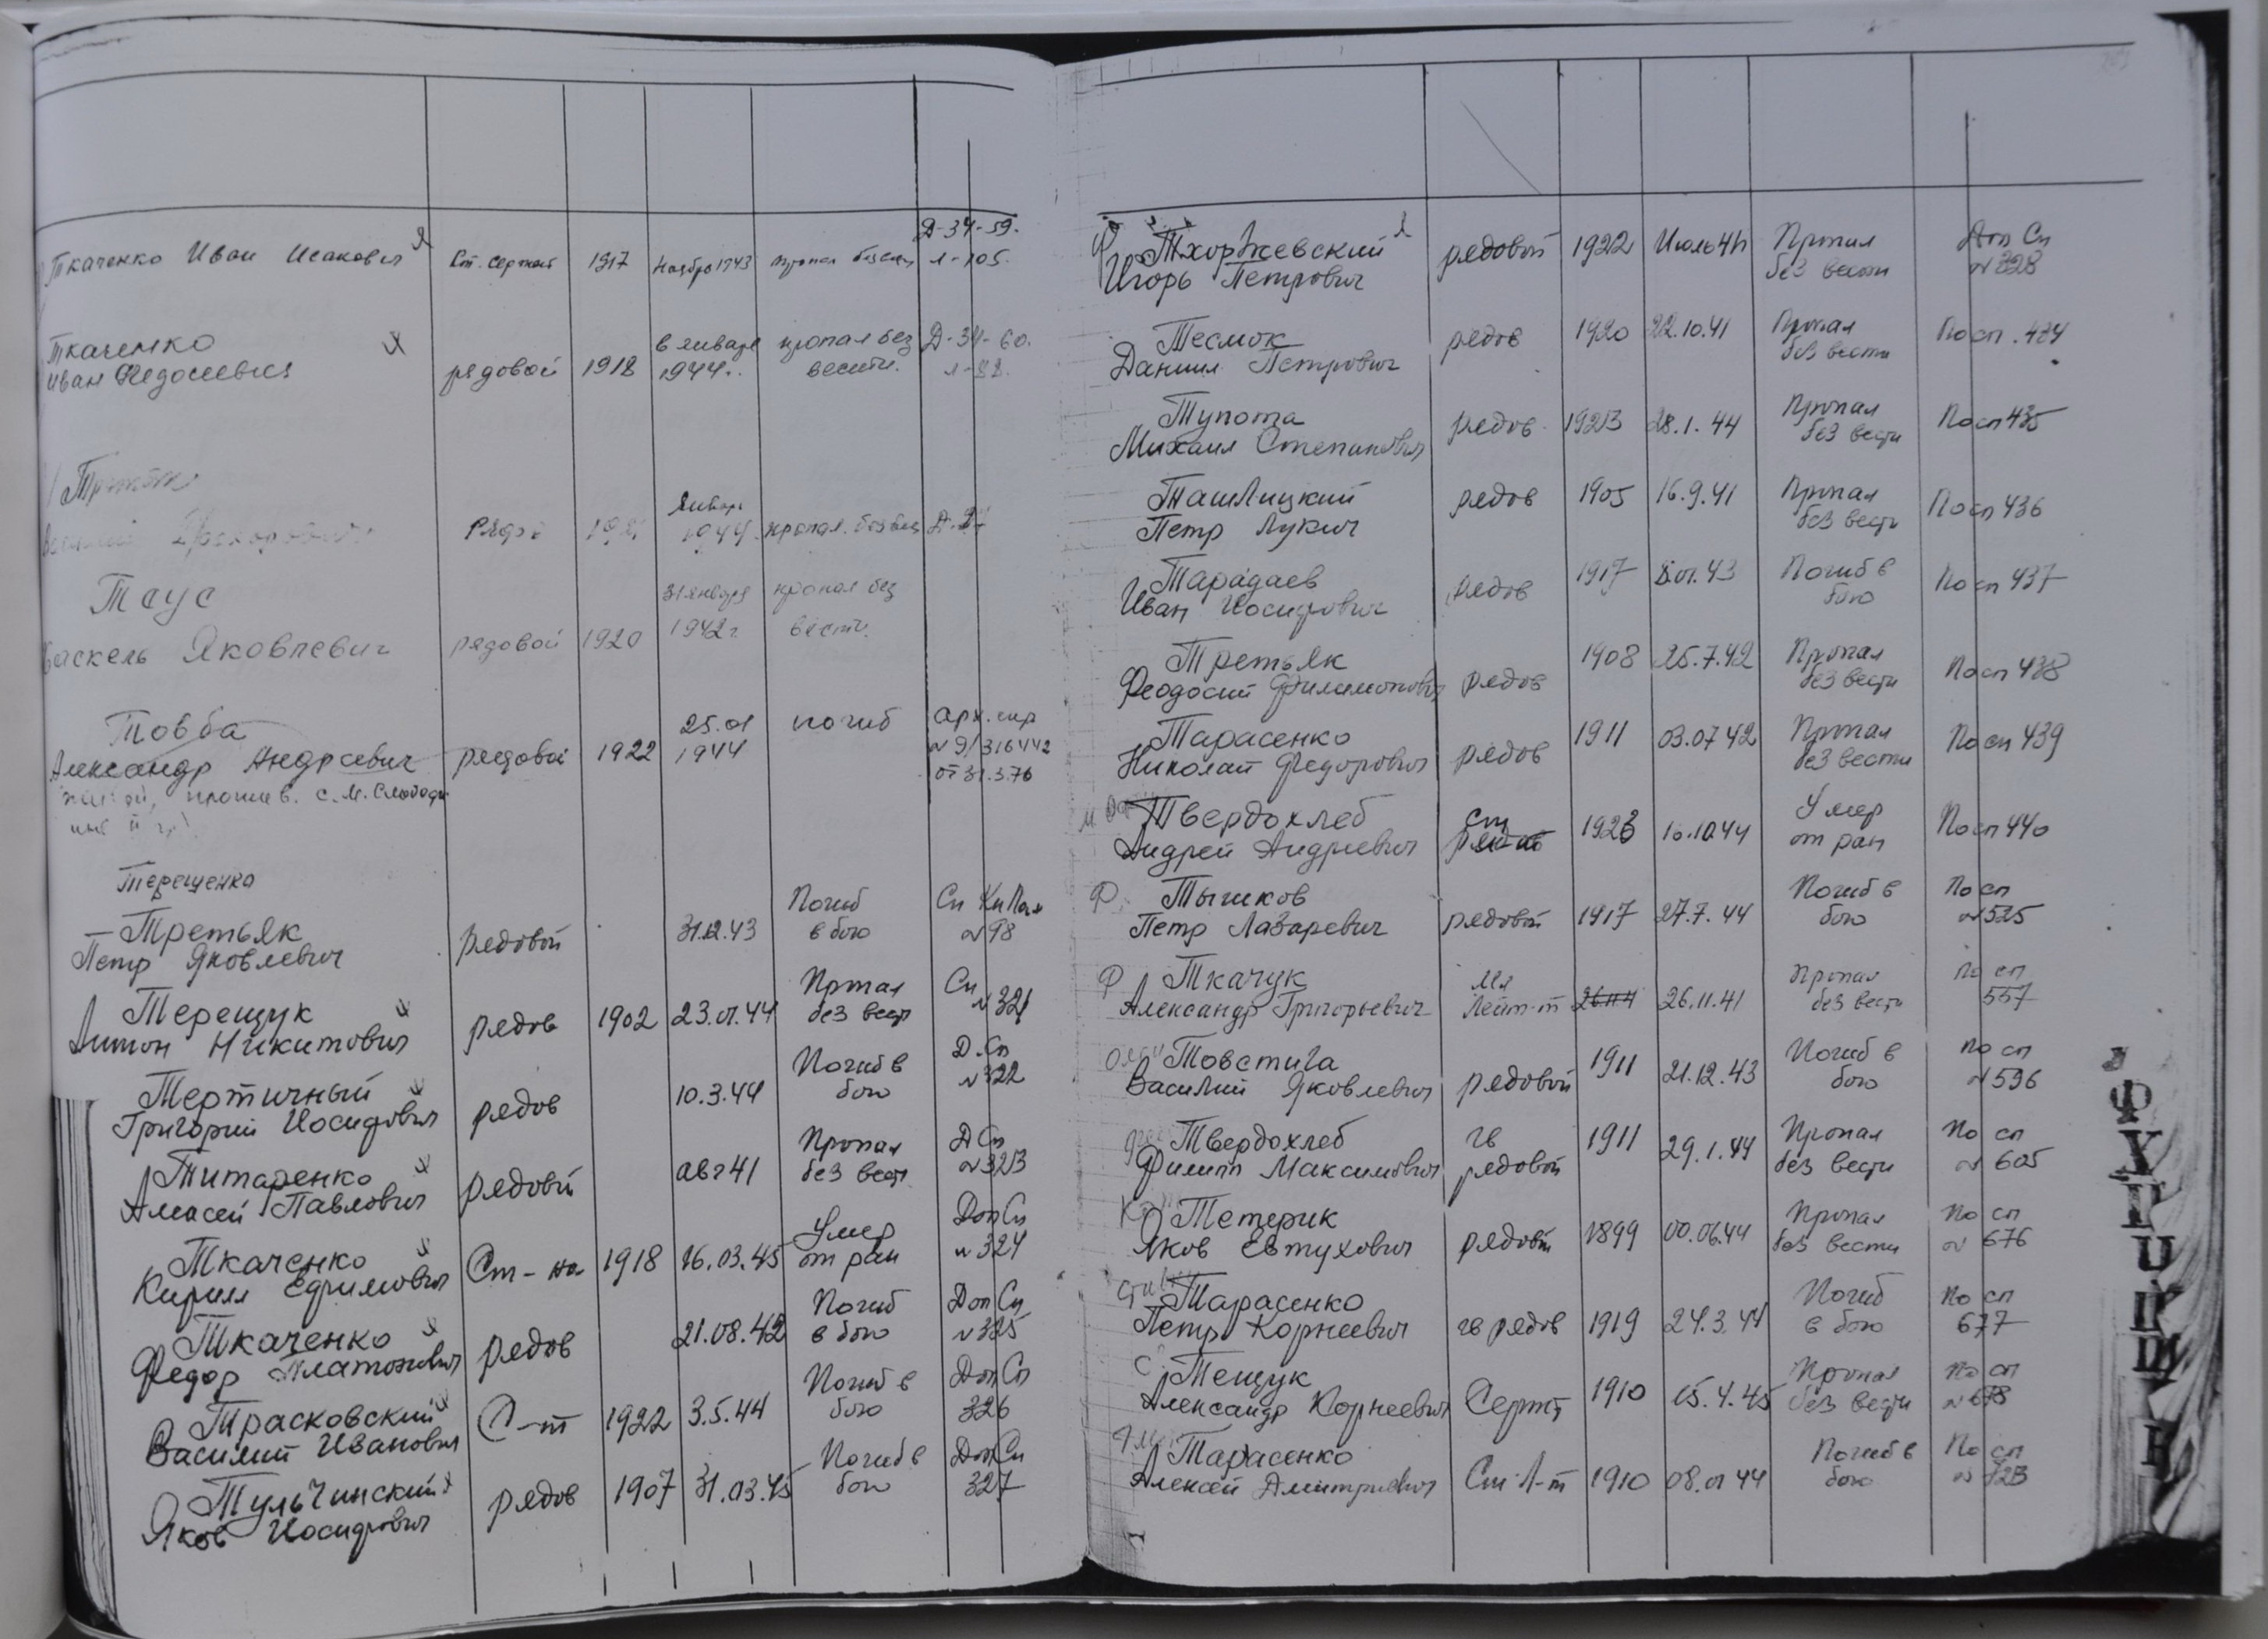 Д-34-59.
Ткаченко Иван Исакович Я Ст. сержант 1917 Ноябрь 1943 пропал без вести л-105.
Ткаченко
Иван Федосеевич рядовой 1918 в январе 1944г. пропал без вести. Д-34-60. л-88.
Январь
1944 пропал. без вести Д-27
Таус
Яковлевич рядовой 1920 31 января 1942 г. пропал без вести.
Товба
Александр Андреевич рядовой 1922 25.01 1944 погиб Арх. спр
№9/316442
от 31.3.76
прожив. с. М. Слобода
Терещенко
Третьяк
Петр Яковлевич рядовой 31.12.43 Погиб в бою Сп Кн Пам №98
Терещук
Антон Никитович рядов 1902 23.01.44 Пропал без вест Сп №321
Тертичный
Григорий Иосифович рядов 10.3.44 Погиб в бою Д.Сп №322
Титаренко
Алексей Павлович рядовой авг 41 Пропал без вест Д Сп №323
Ткаченко
Кирилл Ефимович Ст-на 1918 16.03.45 Умер от ран Доп Сп №324
Ткаченко
Федор Платонович рядов 21.08.42 Погиб в бою Доп Сп №325
Трасковский
Василий Иванович Л-т 1922 3.5.44 Погиб в бою Доп Сп 326
Тульчинский
Яков Иосифович рядов 1907 31.03.45 Погиб в бою Доп Сп 327
Тхоржевский
Игорь Петрович рядовой 1922 Июль 41 Пропал без вести Доп Сп №328
Тесмок
Даниил Петрович рядов 1920 22.10.41 Пропал без вести По сп. 434
Тупота
Михаил Степанович рядов. 1923 28.1.44 Пропал без вести По сп 435
Ташлицкий
Петр Лукич рядов 1905 16.9.41 Пропал без вести По сп 436
Тарадаев
Иван Иосифович рядов 1917 8.01.43 Погиб в бою По сп 437
Третьяк
Феодосий Филимонович рядов 1908 25.7.42 Пропал без вести По сп 438
Тарасенко
Николай Федорович рядов 1911 03.07.42 Пропал без вести По сп 439
Твердохлеб
Андрей Андреевич 1923 10.10.44 Умер от ран По сп 440
Ф. Тычков
Петр Лазаревич рядовой 1917 27.7.44 Погиб в бою По сп №525
Ф Ткачук
Александр Григорьевич Мл Лейт-т 26.11.41 26.11.41 Пропал без вест По сп 557
Товстига
Василий Яковлевич рядовой 1911 21.12.43 Погиб в бою По сп №596
Твердохлеб
Филипп Максимович гв рядовой 1911 29.1.44 Пропал без вести По сп №605
Тетерик
Яков Евтухович рядовой 1899 00.06.44 Пропал без вести По сп №676
Тарасенко
Петр Корнеевич гв рядов 1919 24.3.44 Погиб в бою По сп 677
Тещук
Александр Корнеевич Сержт 1910 15.4.45 Пропал без вести По сп №678
Тарасенко
Алексей Дмитриевич Ст Л-т 1910 08.01.44 Погиб в бою По сп